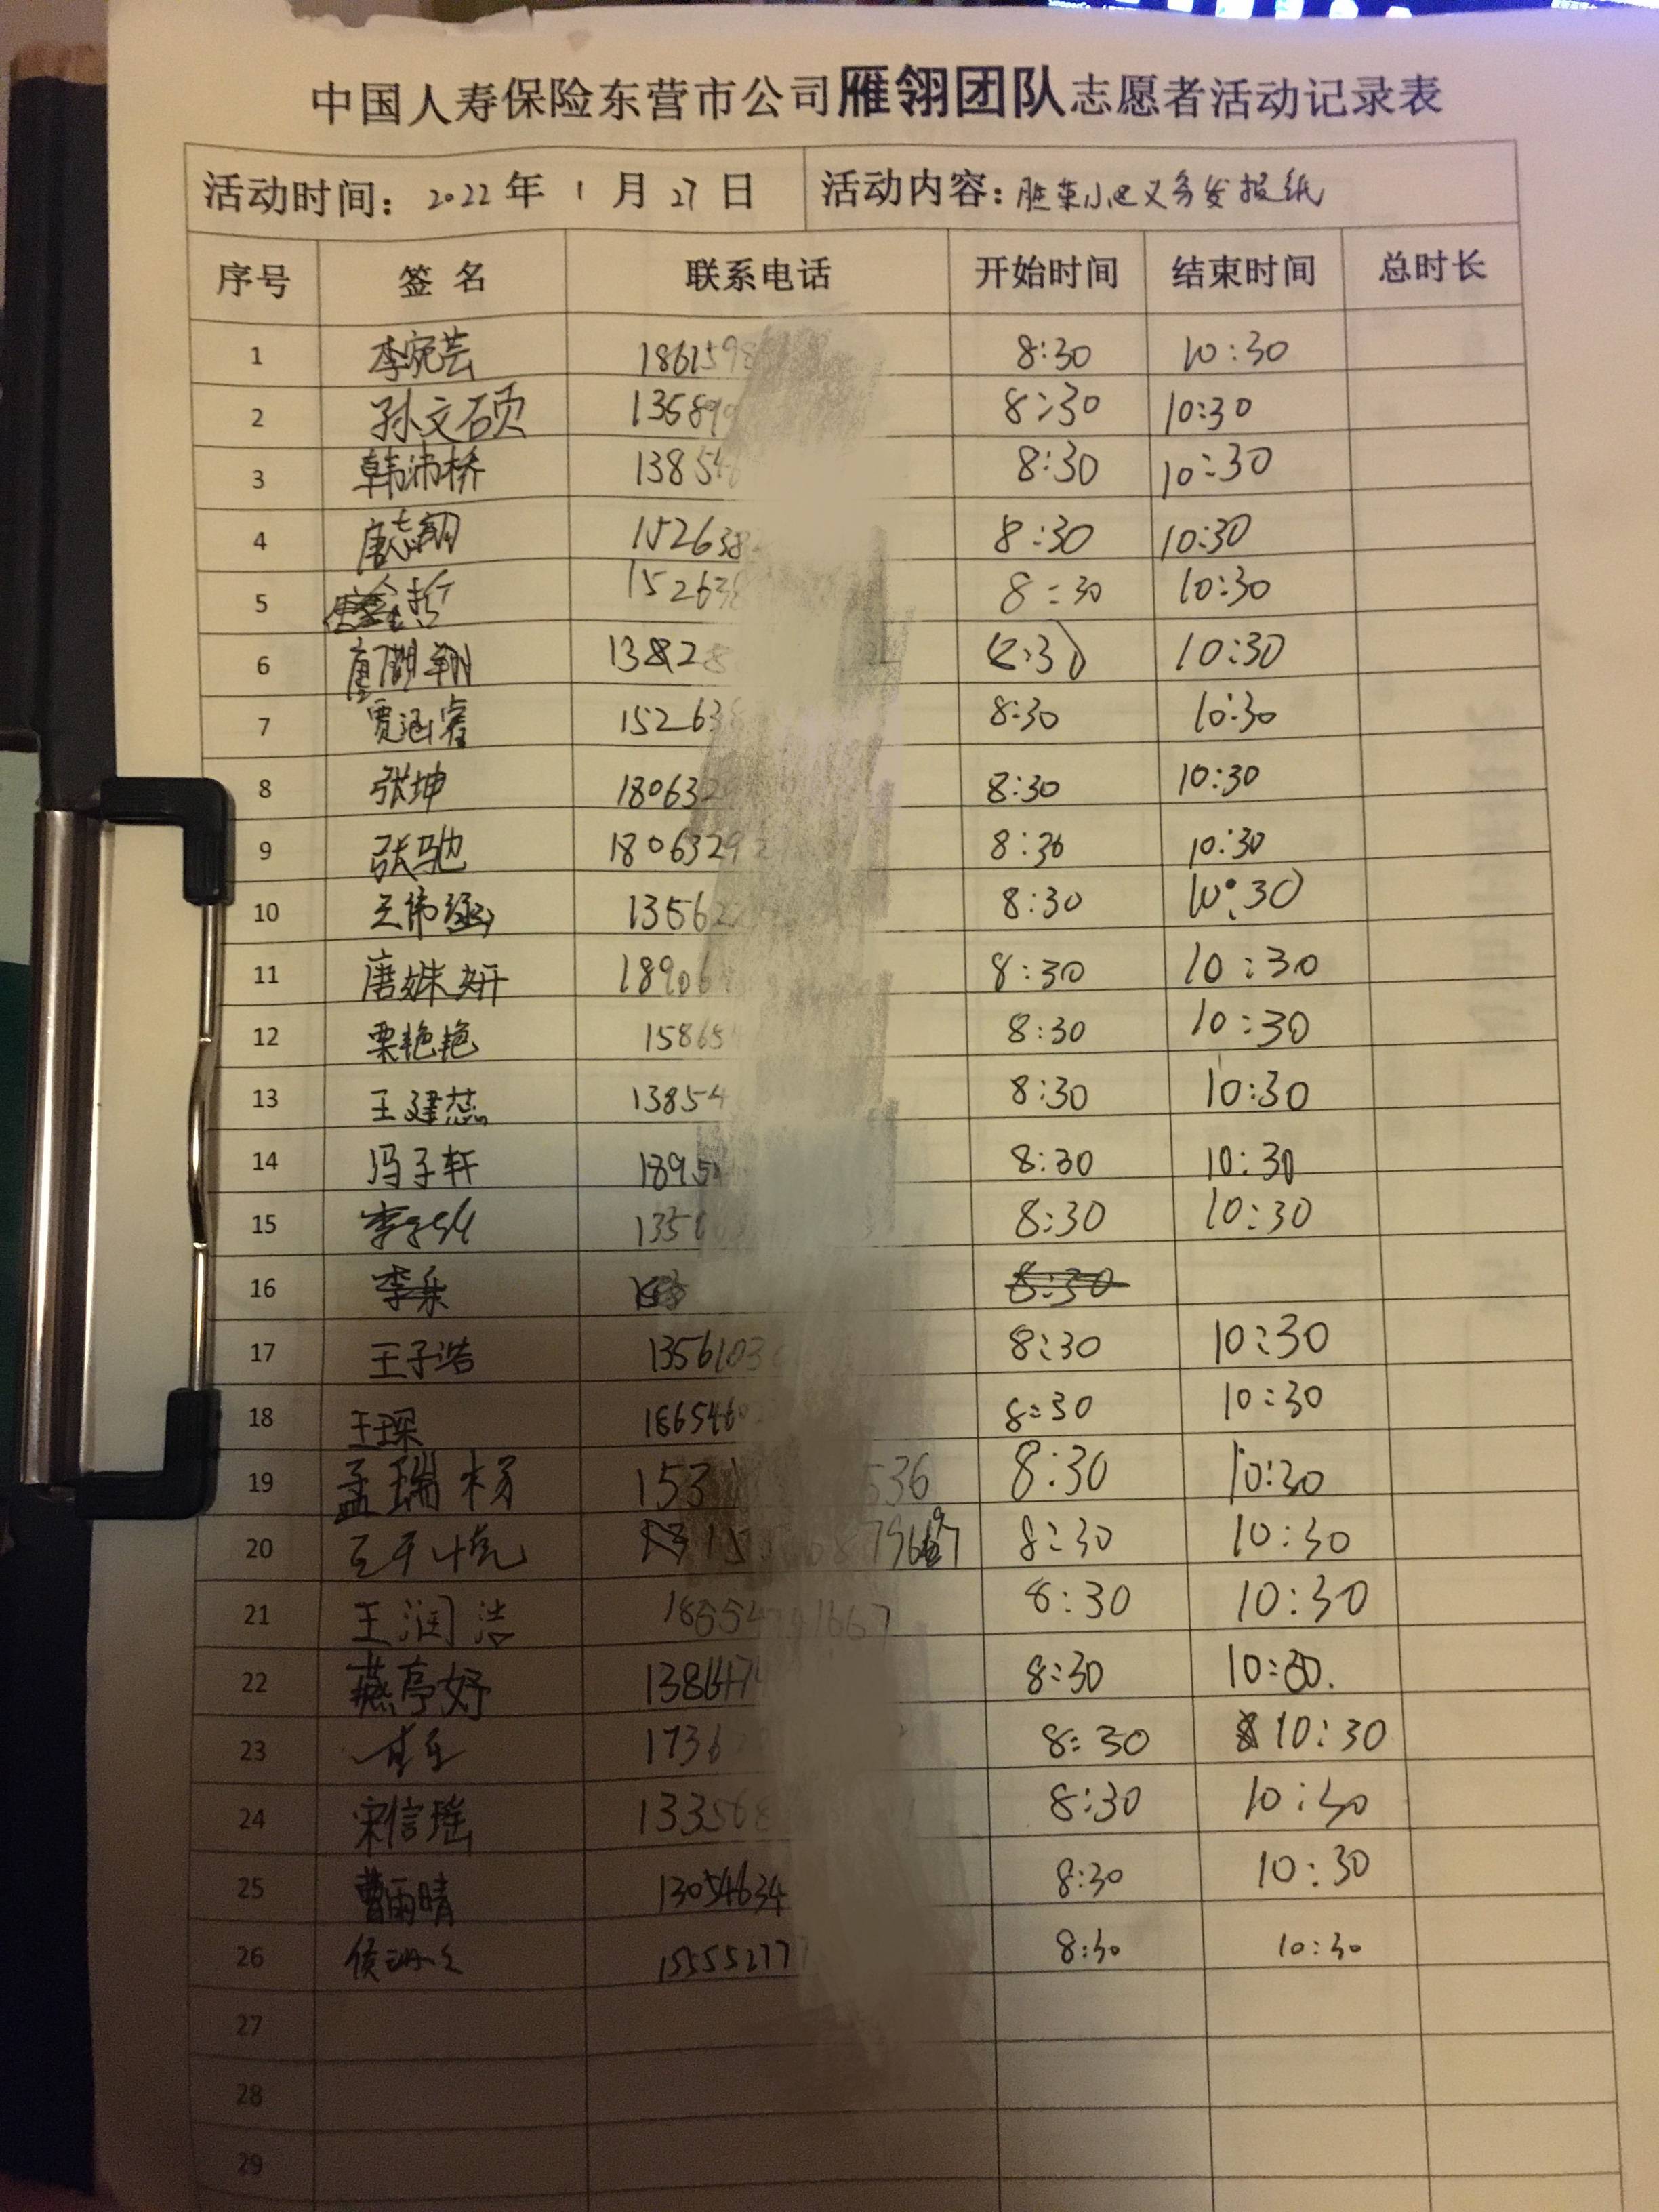 中国人寿保险东营市公司雁翎团队志愿者活动记录表
活动时间：2022年1月27日 活动内容：胜莱小区义务发报纸
序号 签名 联系电话 开始时间 结束时间 总时长
1 李宛芸 186159 8:30 10:30
2 孙文硕 13589 8:30 10:30
3 韩沛桥 13854 8:30 10:30
4 唐志翔 152638 8:30 10:30
5 15263 8:30 10:30
6 1382 8:30 10:30
7 贾涵睿 15263 8:30 10:30
8 张坤 180632 8:30 10:30
9 张驰 1806329 8:30 10:30
10 王伟涵 13562 8:30 10:30
11 唐姝妍 1890 8:30 10:30
12 栗艳艳 15865 8:30 10:30
13 王建蕊 13854 8:30 10:30
14 冯子轩 1895 8:30 10:30
15 135 8:30 10:30
16 李乐 8:30
17 王子浩 1356103 8:30 10:30
18 王琛 1865460 8:30 10:30
19 孟瑞杨 153 536 8:30 10:30
20 8:30 10:30
21 王润洁 1865 1667 8:30 10:30
22 燕亭妤 138647 8:30 10:30.
23 1736 8:30 10:30
24 宋信瑶 13356 8:30 10:30
25 曹雨晴 13054634 8:30 10:30
26 15555277 8:30 10:30
27
28
29